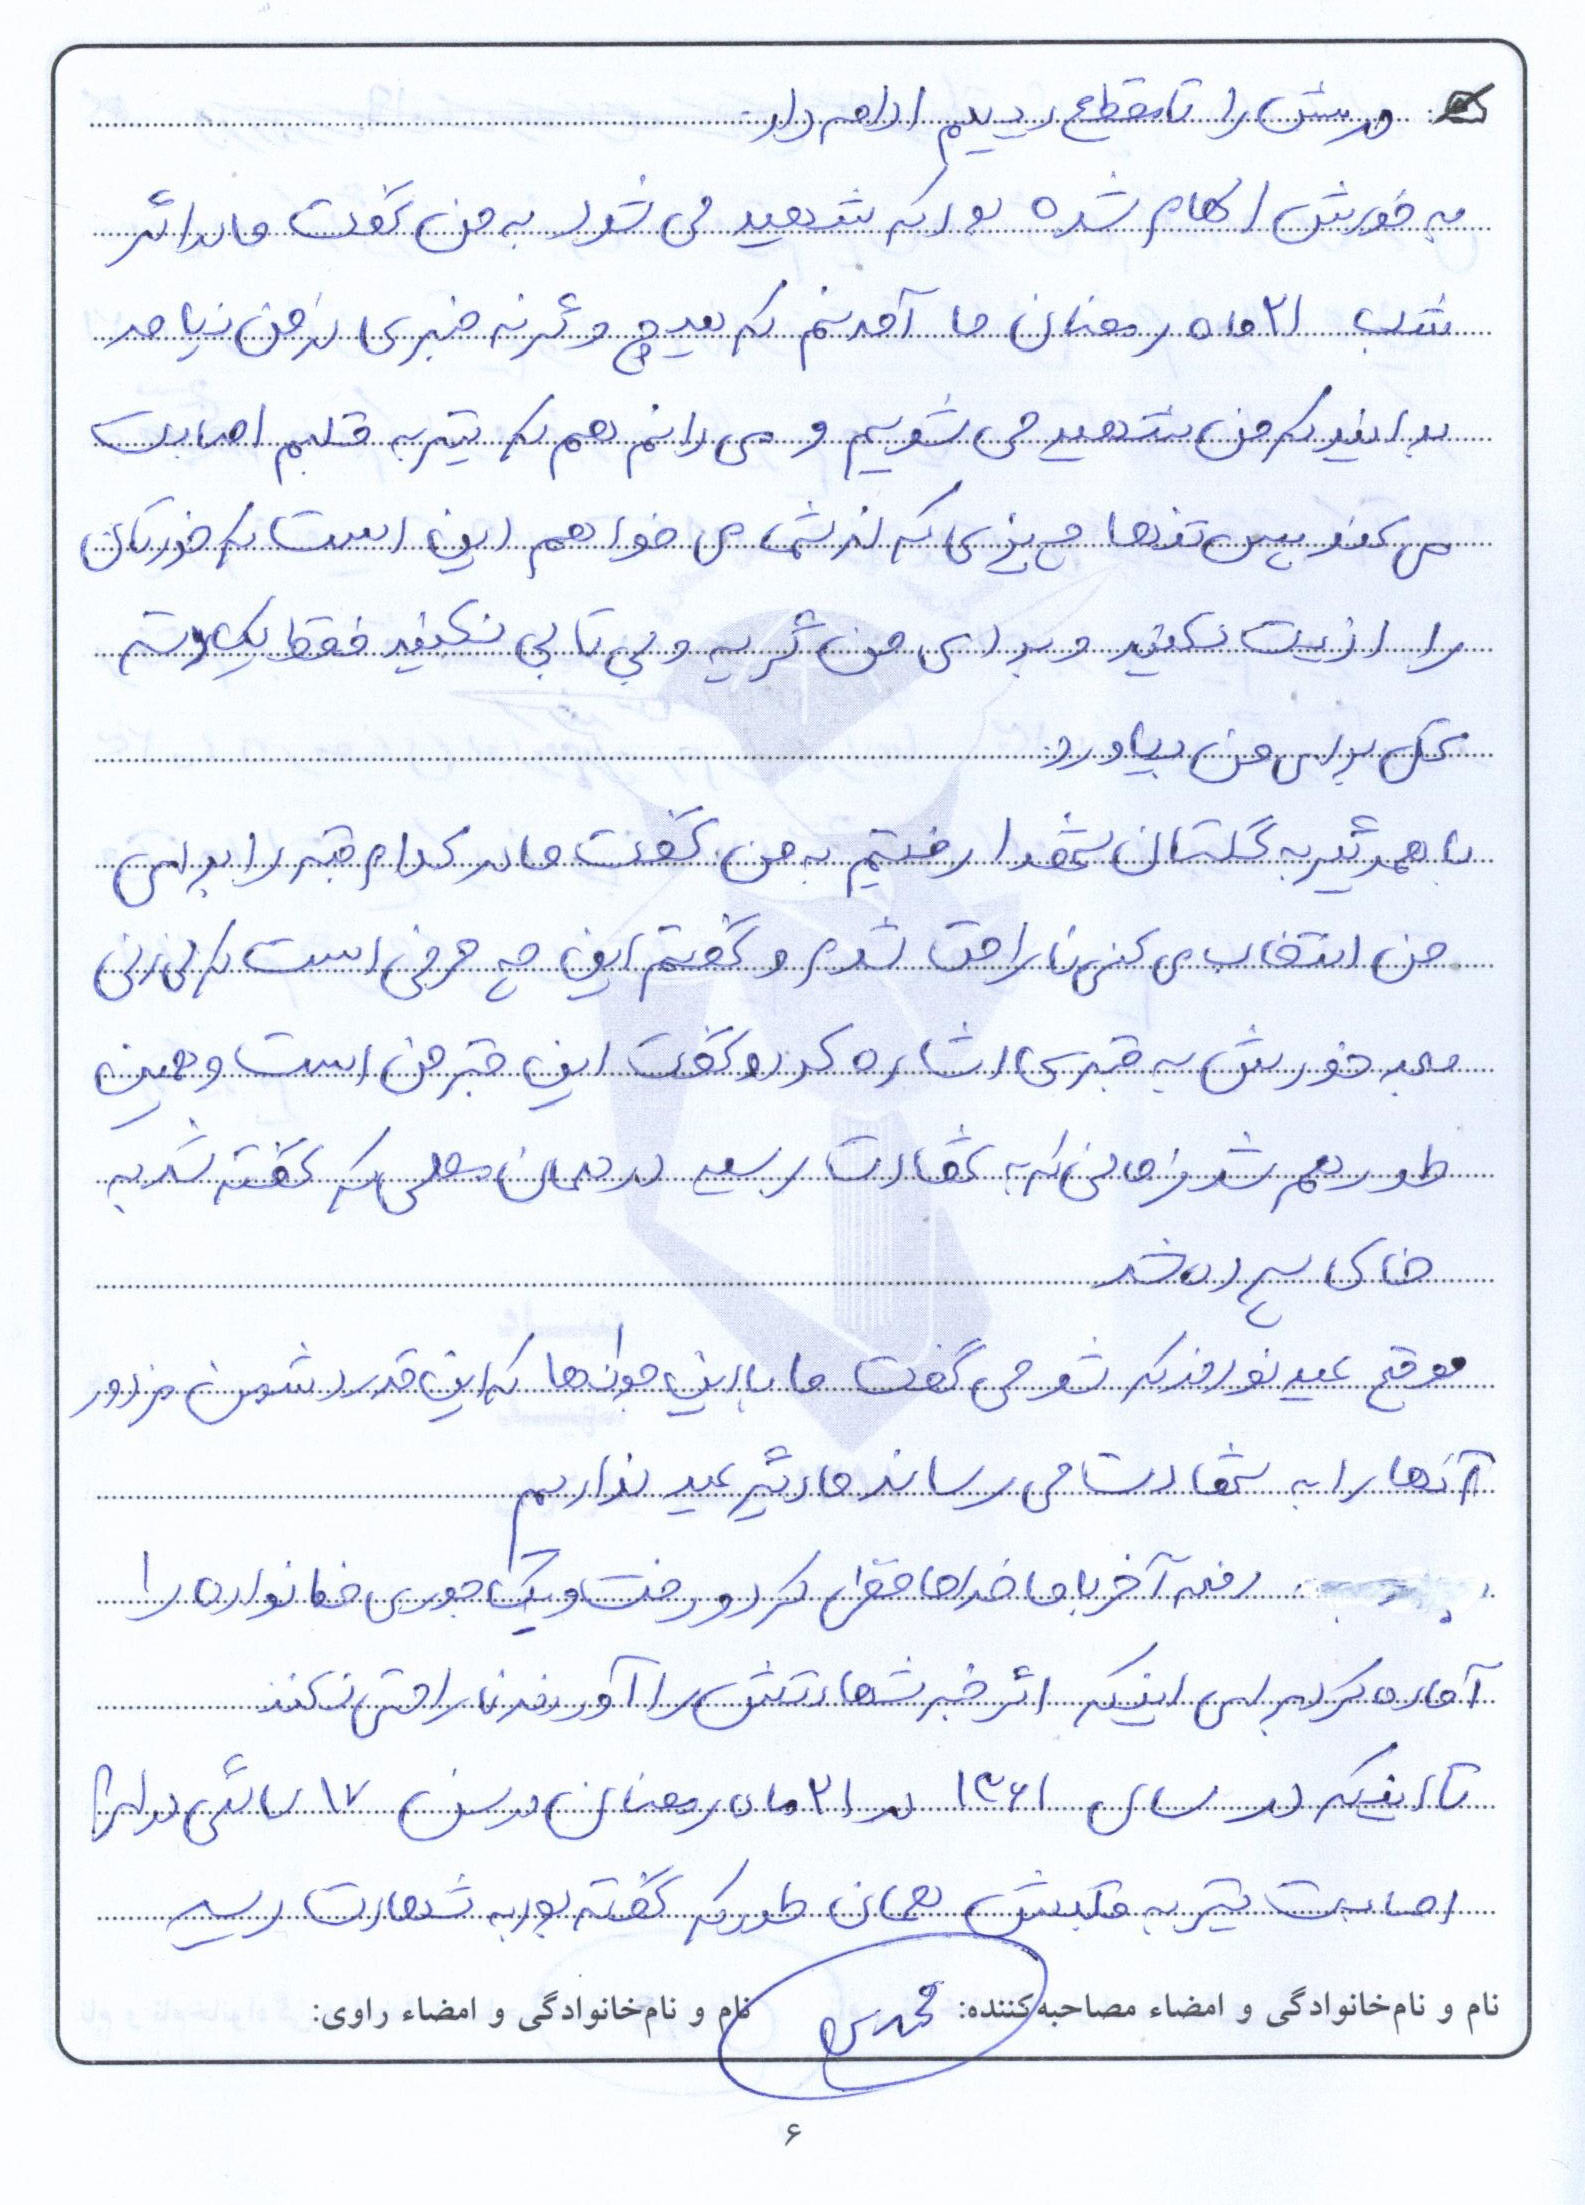 درسش را تا مقطع دیپلم ادامه داد.
به خودش الهام شده بود که شهید می شود به من گفت مادر اگر
شب ۲۱ ماه رمضان ما آمدنم که هیچ وگرنه خبری از من نیامد
بدانید که من شهید می شویم و می دانم هم که تیر به قلبم اصابت
می کند پس تنها چیزی که از شما می خواهم این است که خودتان
را اذیت نکنید و برای من گریه و بی تابی نکنید فقط یک دسته
گل برای من بیاورد.
با همدیگر به گلستان شهدا رفتیم به من گفت مادر کدام قبر را برای
من انتخاب می کنی ناراحت شدم و گفتم این چه حرفی است که می زنی
بعد خودش به قبری اشاره کرد و گفت این قبر من است و همین
طور هم شد زمانی که به شهادت رسید در همان محلی که گفته شد به
خاک سپرده شد
موقع عید نوروز که شد می گفت ما با این جوان ها که این قدر دشمن مزدور
آنها را به شهادت می رساند ما دیگر عید نداریم
دفعه آخر با ما خداحافظی کرد و رفت و یک جوری خانواده را
آماده کرد برای اینکه اگر خبر شهادتش را آوردند ناراحتی نکنند
تا اینکه در سال ۱۳۶۱ در ۲۱ ماه رمضان در سن ۱۷ سالگی در اثر
اصابت تیر به قلبش همان طور که گفته بود به شهادت رسید
نام و نام‌خانوادگی و امضاء مصاحبه‌کننده: نام و نام‌خانوادگی و امضاء راوی:
۶